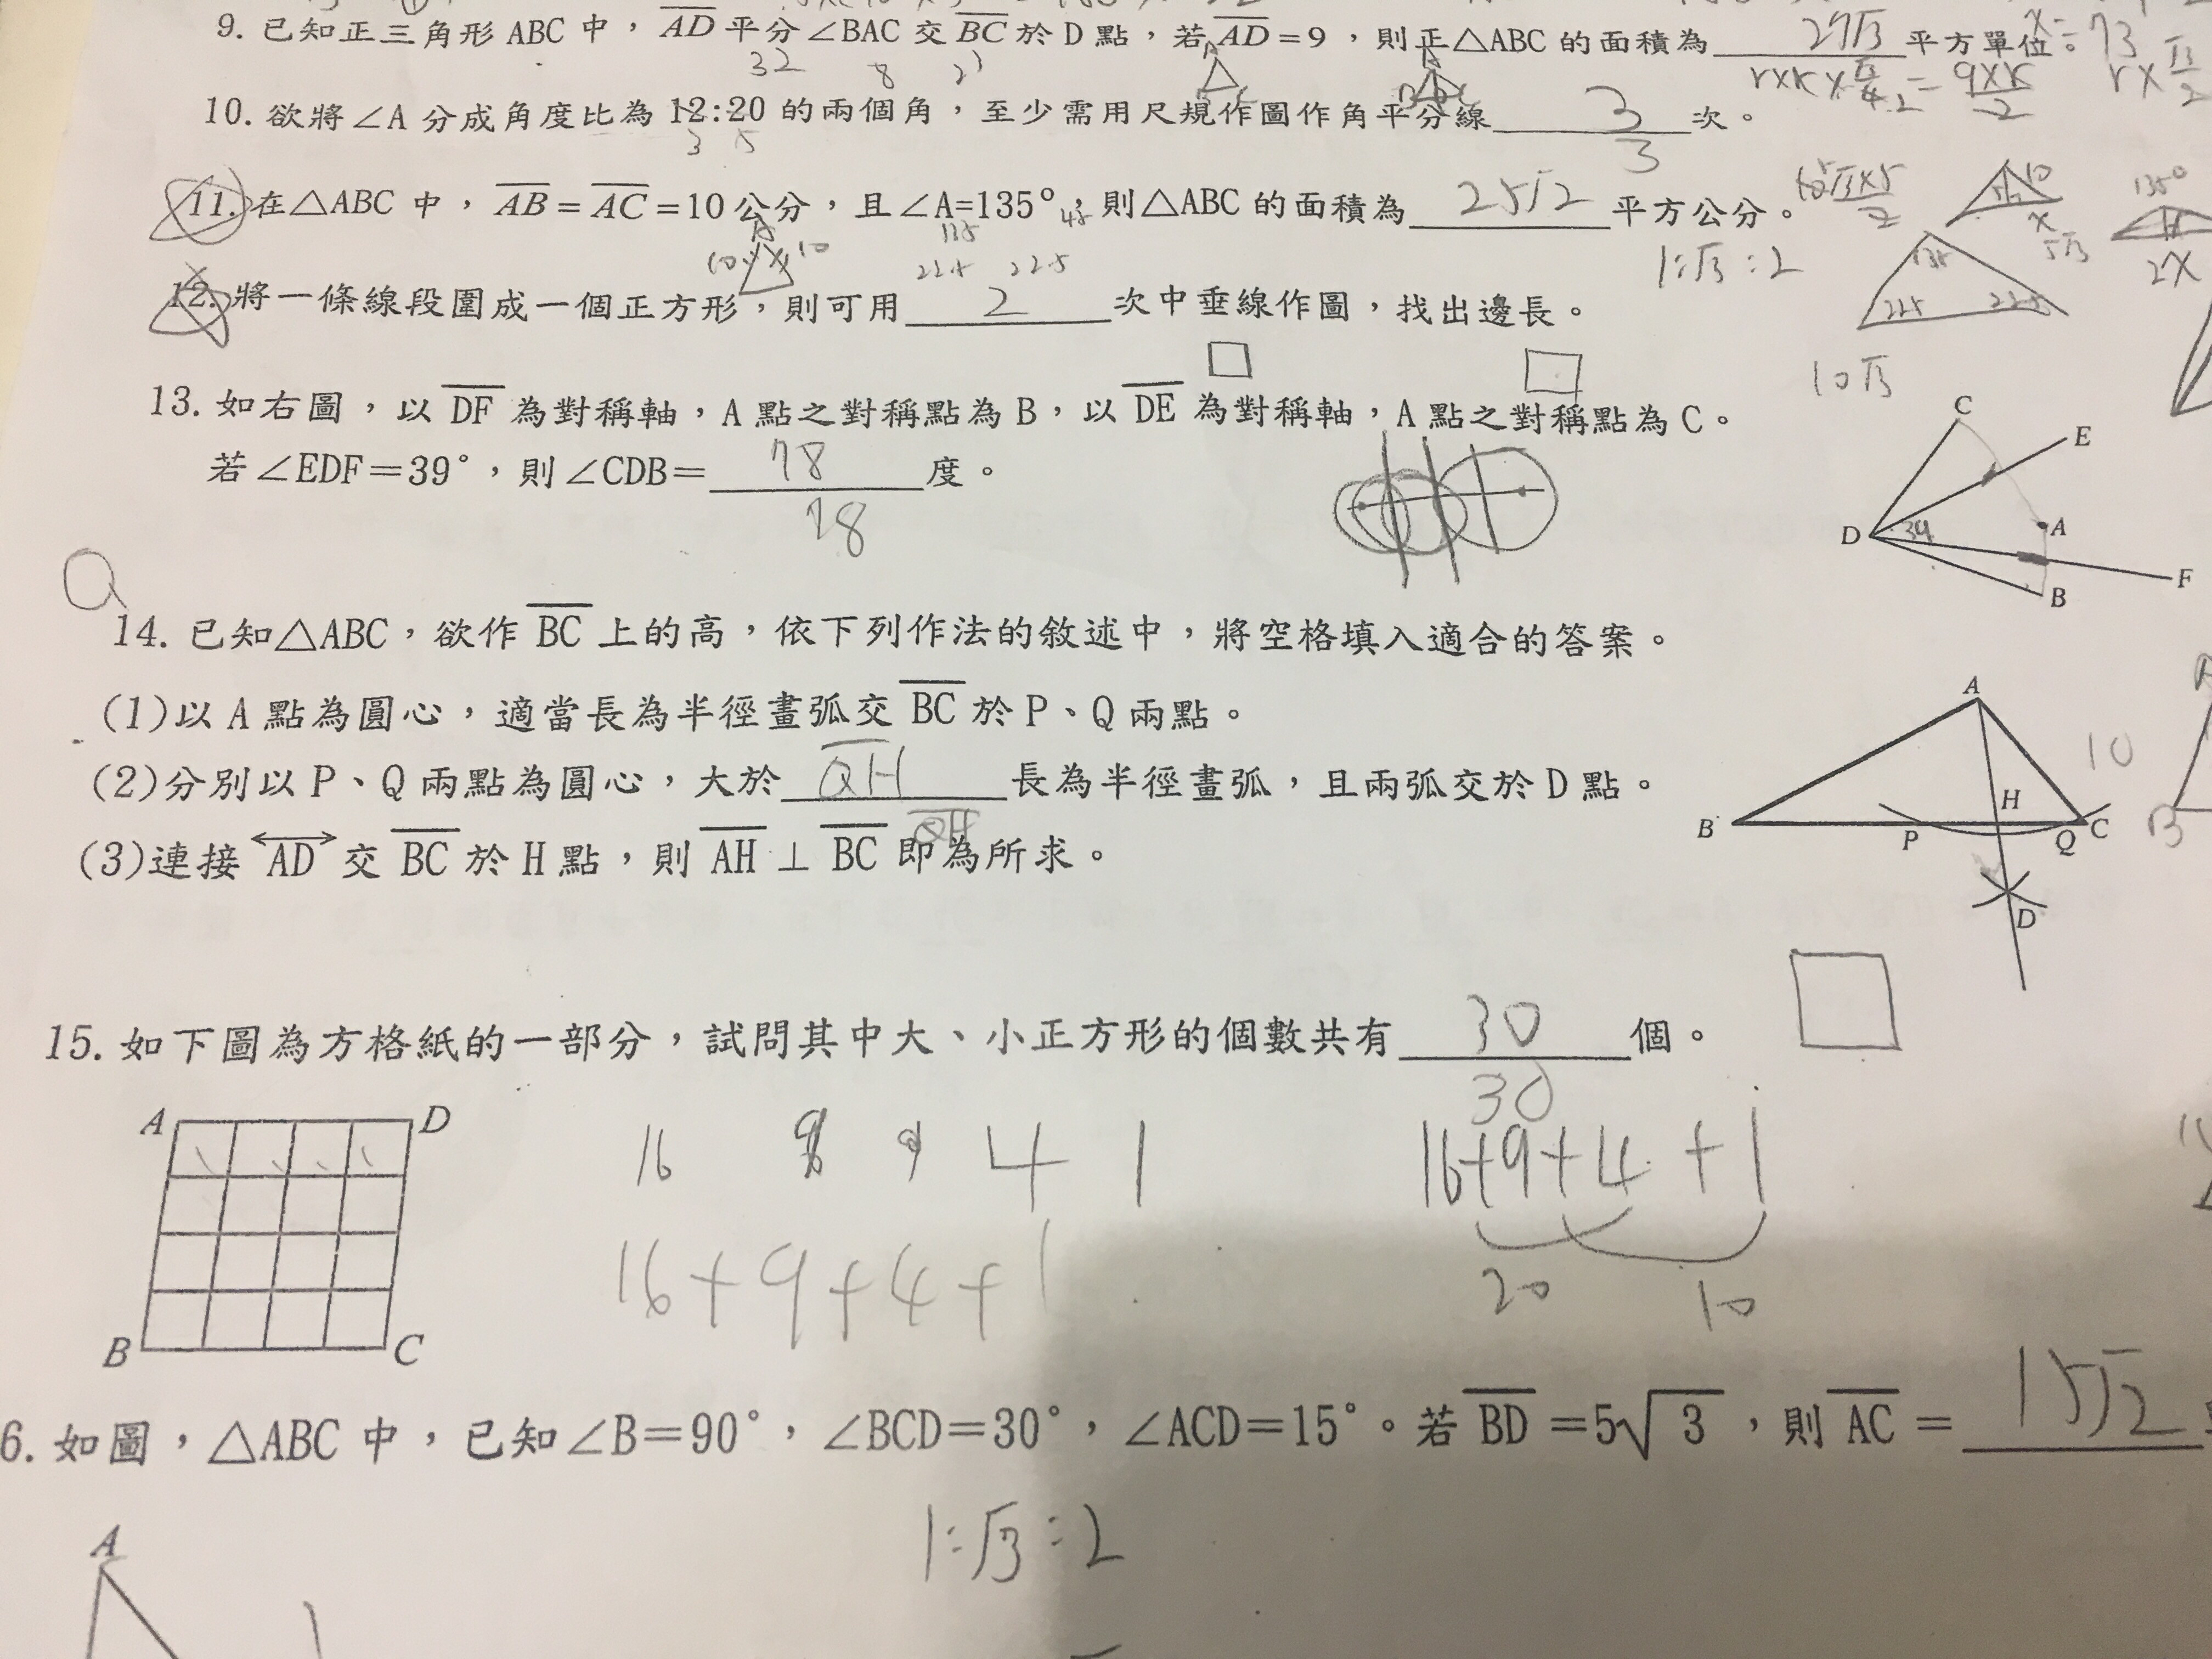 9. 已知正三角形 ABC 中，AD 平分∠BAC 交 BC 於 D 點，若 AD = 9，則正△ABC 的面積為 27√3 平方單位。
32 8
10. 欲將∠A 分成角度比為 12:20 的兩個角，至少需用尺規作圖作角平分線 3 次。
3 5
3
11. 在△ABC 中，AB = AC =10 公分，且∠A=135°，則△ABC 的面積為 25√2 平方公分。
135 45
10 10 22.5 22.5
1:√3:2
135°
10
x
5√3
2x
135
22.5 22.5
12. 將一條線段圍成一個正方形，則可用 2 次中垂線作圖，找出邊長。
10√3
13. 如右圖，以 DF 為對稱軸，A 點之對稱點為 B，以 DE 為對稱軸，A 點之對稱點為 C。
若∠EDF=39°，則∠CDB= 78 度。
78
C
E
D 39 A
F
B
14. 已知△ABC，欲作 BC 上的高，依下列作法的敘述中，將空格填入適合的答案。
(1)以 A 點為圓心，適當長為半徑畫弧交 BC 於 P、Q 兩點。
(2)分別以 P、Q 兩點為圓心，大於 QH 長為半徑畫弧，且兩弧交於 D 點。
QH
(3)連接 AD 交 BC 於 H 點，則 AH ⊥ BC 即為所求。
A
10
H
B P Q C
D
B
15. 如下圖為方格紙的一部分，試問其中大、小正方形的個數共有 30 個。
30
A D
16 9 4 1
16+9+4+1
20 10
16+9+4+1
B C
6. 如圖，△ABC 中，已知∠B=90°，∠BCD=30°，∠ACD=15°。若 BD =5√3，則 AC = 15√2
1:√3:2
A